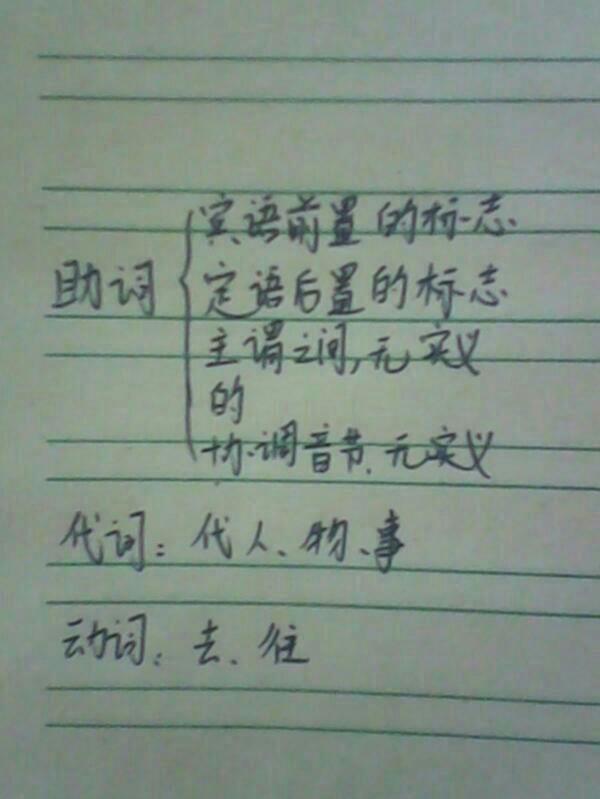 宾语前置的标志
助词 定语后置的标志
主谓之间,无实义
的
协调音节、无实义
代词：代人、物、事
动词：去、往